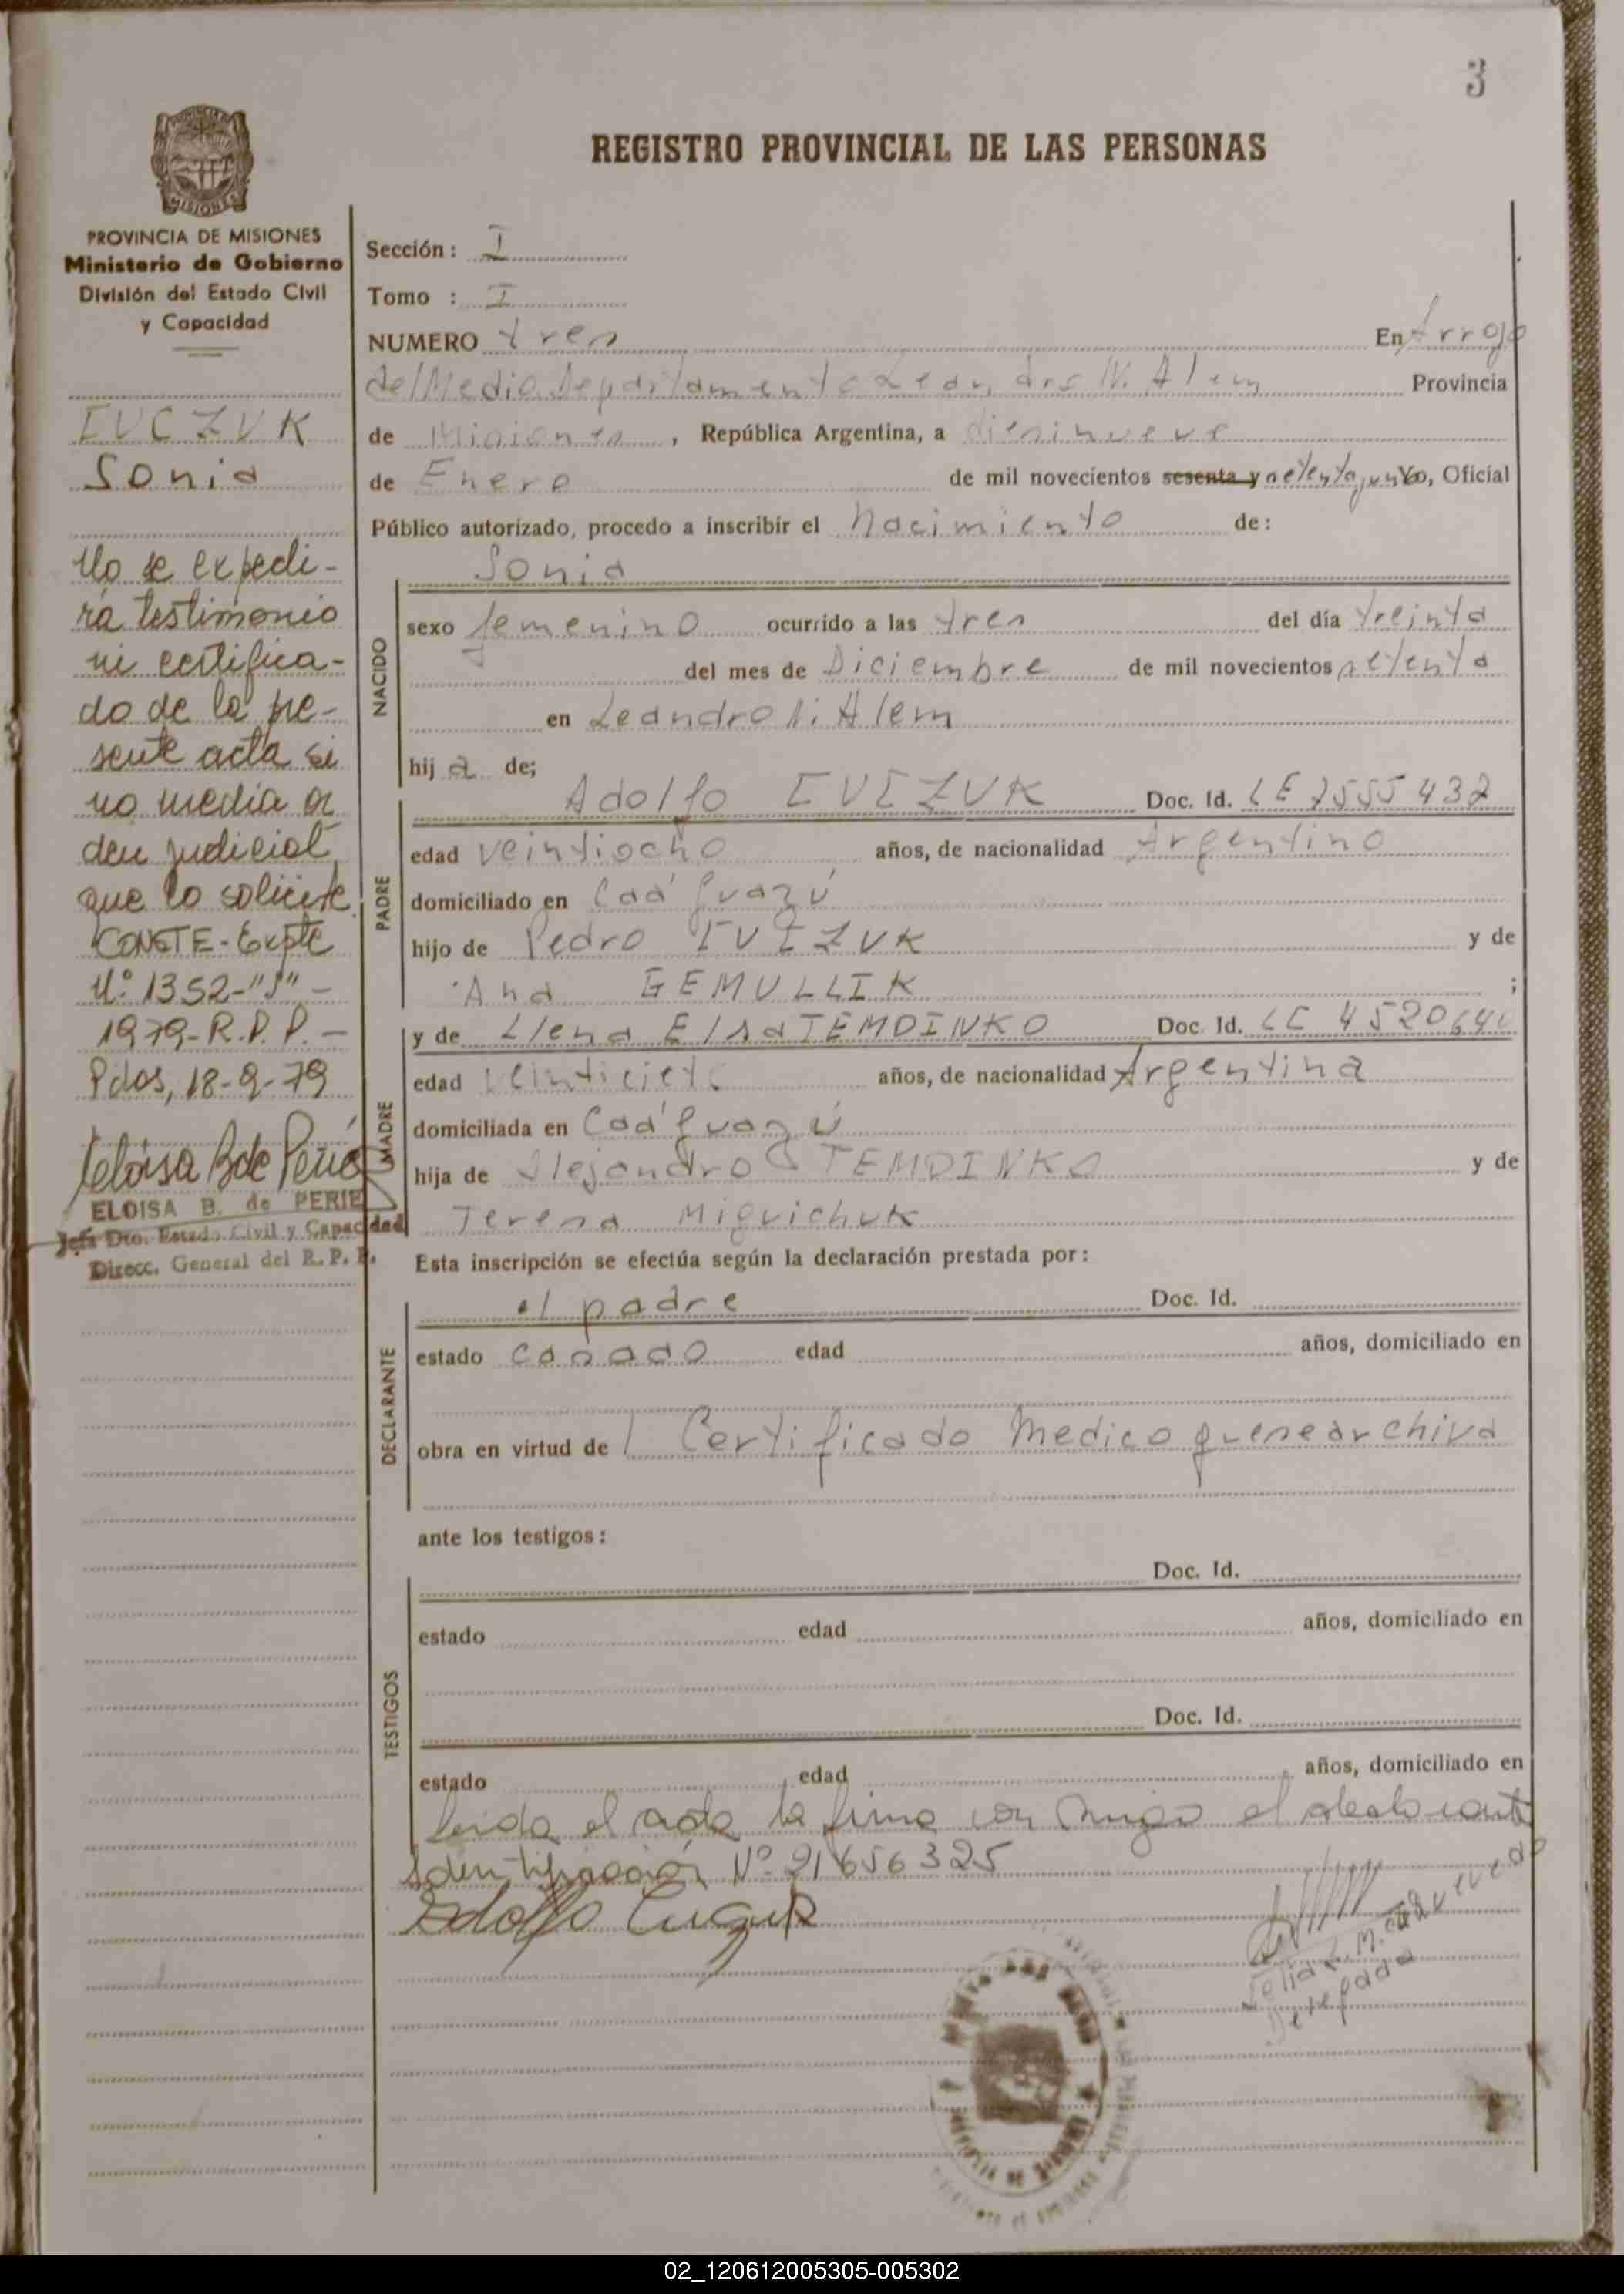 3
REGISTRO PROVINCIAL DE LAS PERSONAS
MISIONES
PROVINCIA DE MISIONES
Ministerio de Gobierno
División del Estado Civil
y Capacidad
Sección : I
Tomo : I
NUMERO tres En Arroyo
del Medio Departamento Leandro N. Alem Provincia
de Misiones, República Argentina, a diesinueve
de Enero de mil novecientos sesenta y setenta y uno, Oficial
Público autorizado, procedo a inscribir el nacimiento de:
IUCZUK
Sonia
No se expedi-
rá testimonio
ni certifica-
do de la pre-
sente acta si
no media or
den judicial
que lo solicite
CONSTE-Expte
Nº 1352-"S"-
1979-R.P.P.-
Pdas, 18-9-79
ELOISA B. de PERIE
Jefa Dto. Estado Civil y Capacidad
Direcc. General del R. P. P.
NACIDO
Sonia
sexo femenino ocurrido a las tres del día treinta
del mes de Diciembre de mil novecientos setenta
en Leandro N. Alem
hija de;
PADRE
Adolfo Doc. Id. LE 7555432
edad veintiocho años, de nacionalidad Argentino
domiciliado en Caá Guazú
hijo de Pedro y de
Ana GEMULLIK ;
MADRE
y de Elsa TEMDINKO Doc. Id. LC
edad veinticiete años, de nacionalidad Argentina
domiciliada en Caá Guazú
hija de Alejandro TEMDINKO y de
Teresa Miguichuk
Esta inscripción se efectúa según la declaración prestada por:
DECLARANTE
el padre Doc. Id.
estado casado edad años, domiciliado en
obra en virtud de Certificado Medico que se archiva
ante los testigos:
TESTIGOS
Doc. Id.
estado edad años, domiciliado en
Doc. Id.
estado edad años, domiciliado en
Leida el acta la firma con migo el declarante
Identificación Nº 21656325
02_120612005305-005302